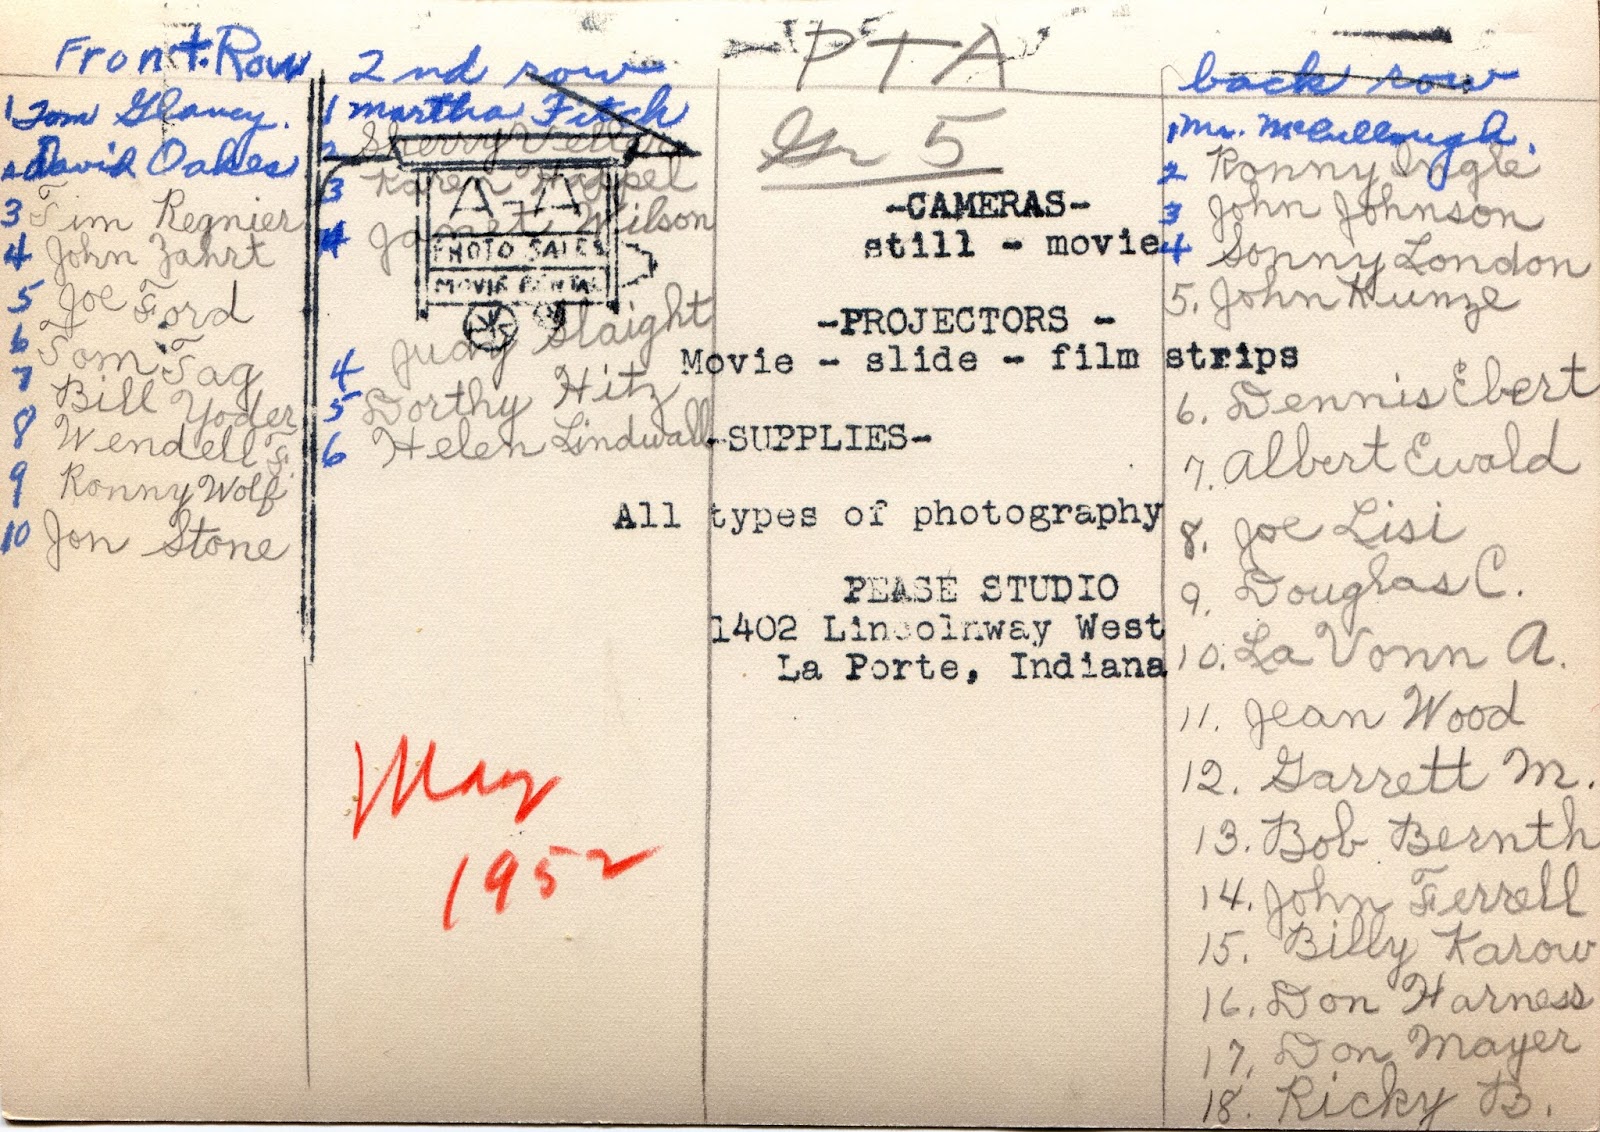 PTA
Gr 5
Front Row
1 Tom Glancy.
2 David Oakes
3 Tim Regnier
4 John Zahrt
5 Joe Ford
6 Tom Tag
7 Bill Yoder
8 Wendell F.
9 Ronny Wolf
10 Jon Stone
2nd row
1 Martha Fitch
2 Sherry
3 Karen Happel
4 Janet Wilson
Judy Slaight
4
5 Dorthy Hitz
6 Helen Lindwall
A-A
PHOTO SALES
MOVIE RENTAL
May
1952
-CAMERAS-
still - movie
-PROJECTORS -
Movie - slide - film strips
-SUPPLIES-
All types of photography
PEASE STUDIO
1402 Lincolnway West
La Porte, Indiana
back row
1 Mr. McCullough.
2 Ronny Ingle
3 John Johnson
4 Sonny London
5. John Kunze
6. Dennis Ebert
7. Albert Ewald
8. Joe Lisi
9. Douglas C.
10. La Vonn A.
11. Jean Wood
12. Garrett M.
13. Bob Bernth
14. John Ferrell
15. Billy Karow
16. Don Harness
17. Don Mayer
18. Ricky B.